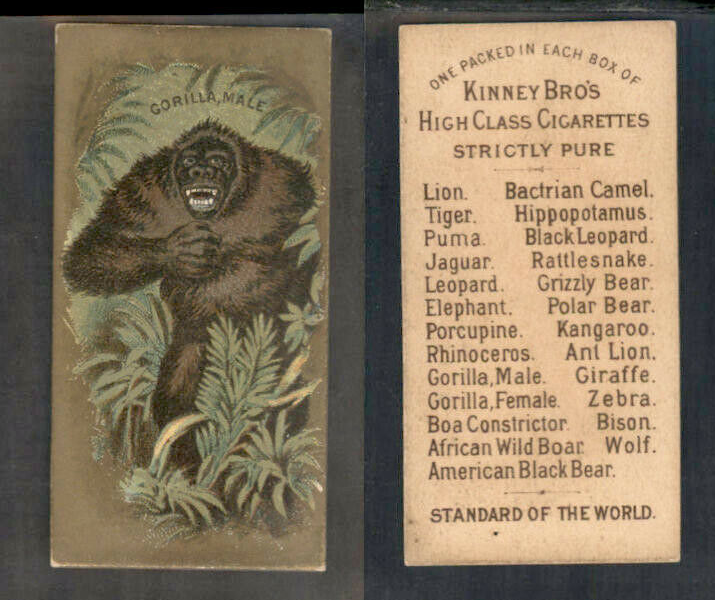 GORILLA, MALE
ONE PACKED IN EACH BOX OF
KINNEY BRO'S
HIGH CLASS CIGARETTES
STRICTLY PURE
Lion. Bactrian Camel.
Tiger. Hippopotamus.
Puma. Black Leopard.
Jaguar. Rattlesnake.
Leopard. Grizzly Bear.
Elephant. Polar Bear.
Porcupine. Kangaroo.
Rhinoceros. Ant Lion.
Gorilla, Male. Giraffe.
Gorilla, Female. Zebra.
Boa Constrictor. Bison.
African Wild Boar. Wolf.
American Black Bear.
STANDARD OF THE WORLD.